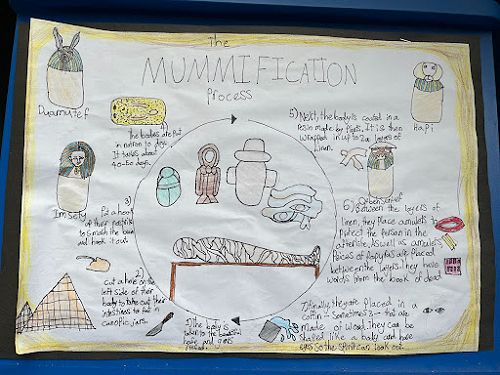 The
MUMMIFICATION
Process
Duamutef
Hapi
Imsety
Qebensenuef
1) The body is
taken to the beautiful
house and gets
2) Cut a hole on the
left side of ther
body to take out their
intestines to put in
canopic jars.
3) Put a hook
up their nostrils
to smash the brain
and hook it out.
4)
The bodies are put
in natron to dry.
It takes about
40-50 days.
5) Next, the body is coverd in a
resin made by
It is then
wrapped in up to 20 layers of
linen.
6) Between the layers of
linen, they place amulets to
protect the person in the
afterlife. As well as amulets,
Peices of papyrus are placed
between the layers. They have
words from the book of dead
7) Finally, they are placed in a
coffin - Sometimes 2 - that are
made of wood. They can be
shaped like a body and have
eyes so the spirit can look out.